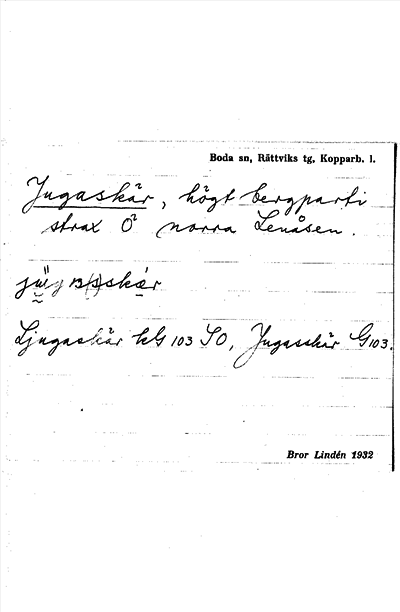 Boda sn, Rättviks tg, Kopparb. l.
Jugaskär, högt bergparti
strax Ö norra Lenåsen.
Ljugaskär kG 103 SO, Jugasskär G 103.
Bror Lindén 1932